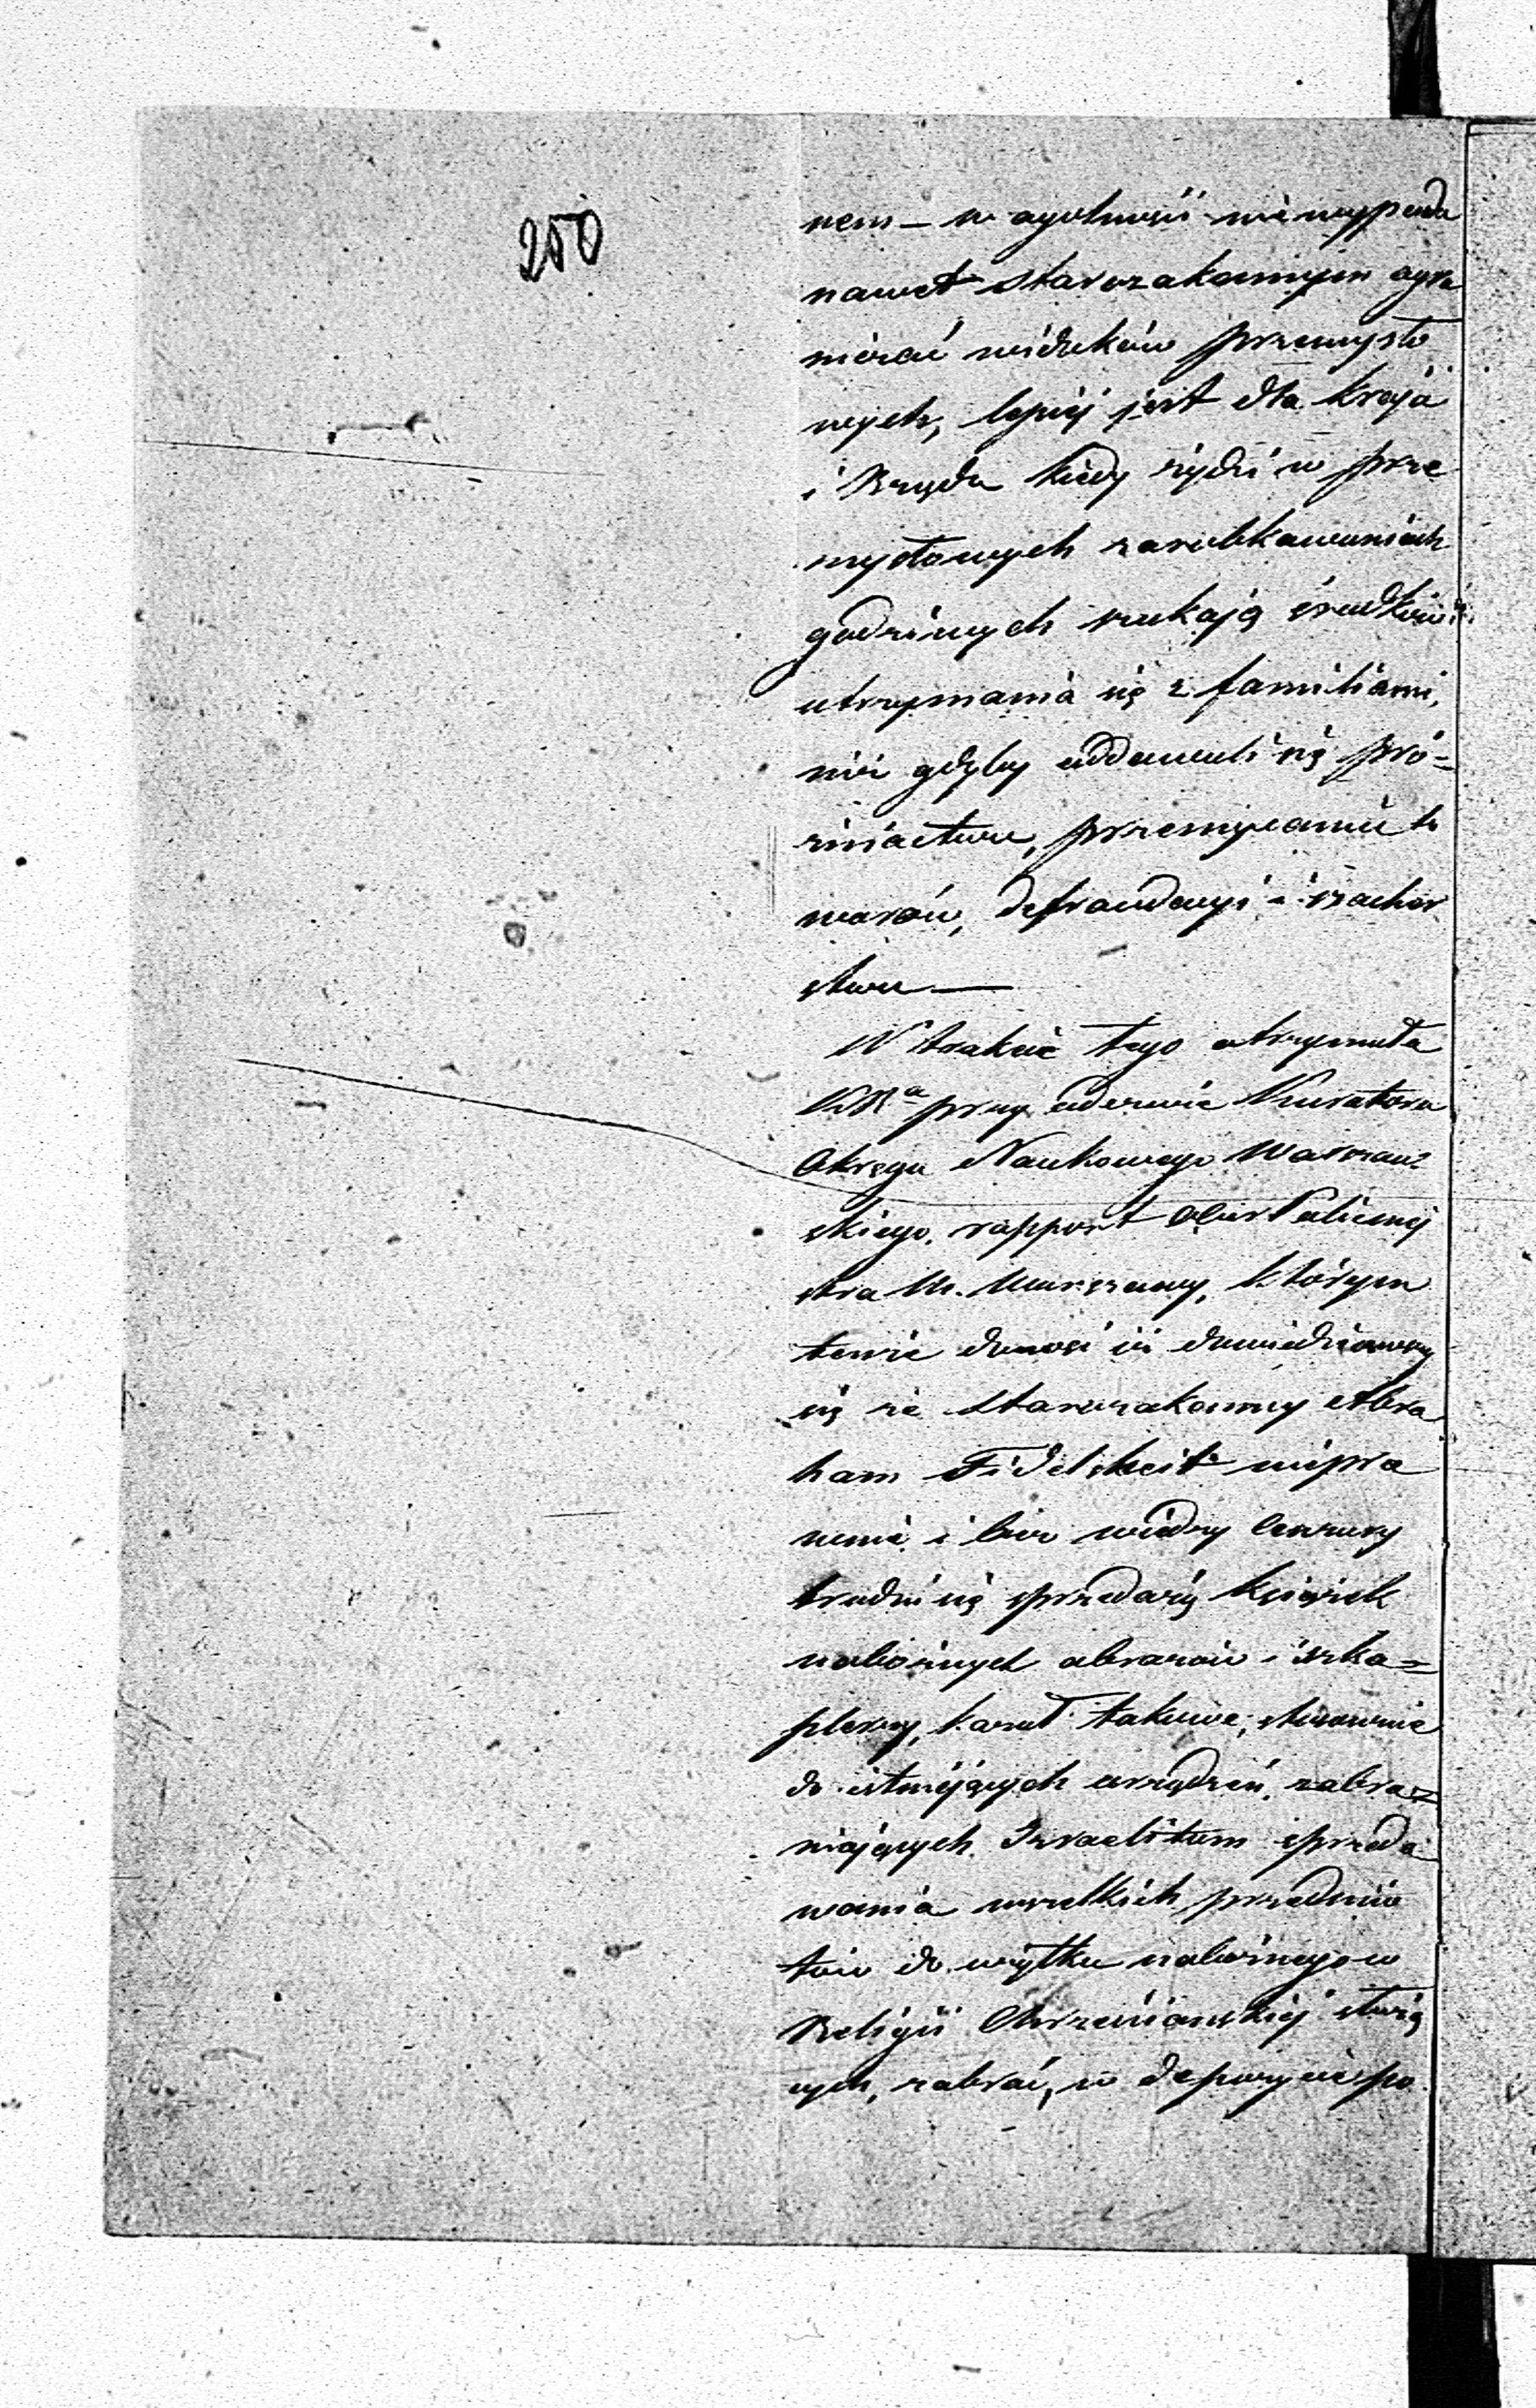 250
nem – w ogolności nie wypada
nawet starozakonnym ogra
niczać widoków przemysło
wych, lepiej jest dla kraju
i Rządu kiedy żydzi w prze
mysłowych zarobkowaniach
godziwych szukają środków
utrzymania się z familiami,
niż gdyby oddawali się pró=
żniactwu, przemycaniu to
warów, defraudacyi i szachor
stwu —
W trakcie tego otrzymała
KRa przy odezwie Kuratora
Okręgu Naukowego Warszaw=
skiego, rapport OberPolicmaj
stra M. Warszawy, którym
tenże donosi iż dowiedziawszy
się że starozakonny Abra
ham Fidelskeit niepra
wnie i bez wiedzy Cenzury
trudni się sprzedażą książek
nabożnych obrazów i szka=
plerzy, kazał takowe, stosownie
do istniejących urządzeń, zabra=
niających Izraelitom sprzeda
wania wszelkich przedmio
tów do użytku nabożnego w
Religii Chrześciańskiej służą
cych, zabrać, w depozycie po